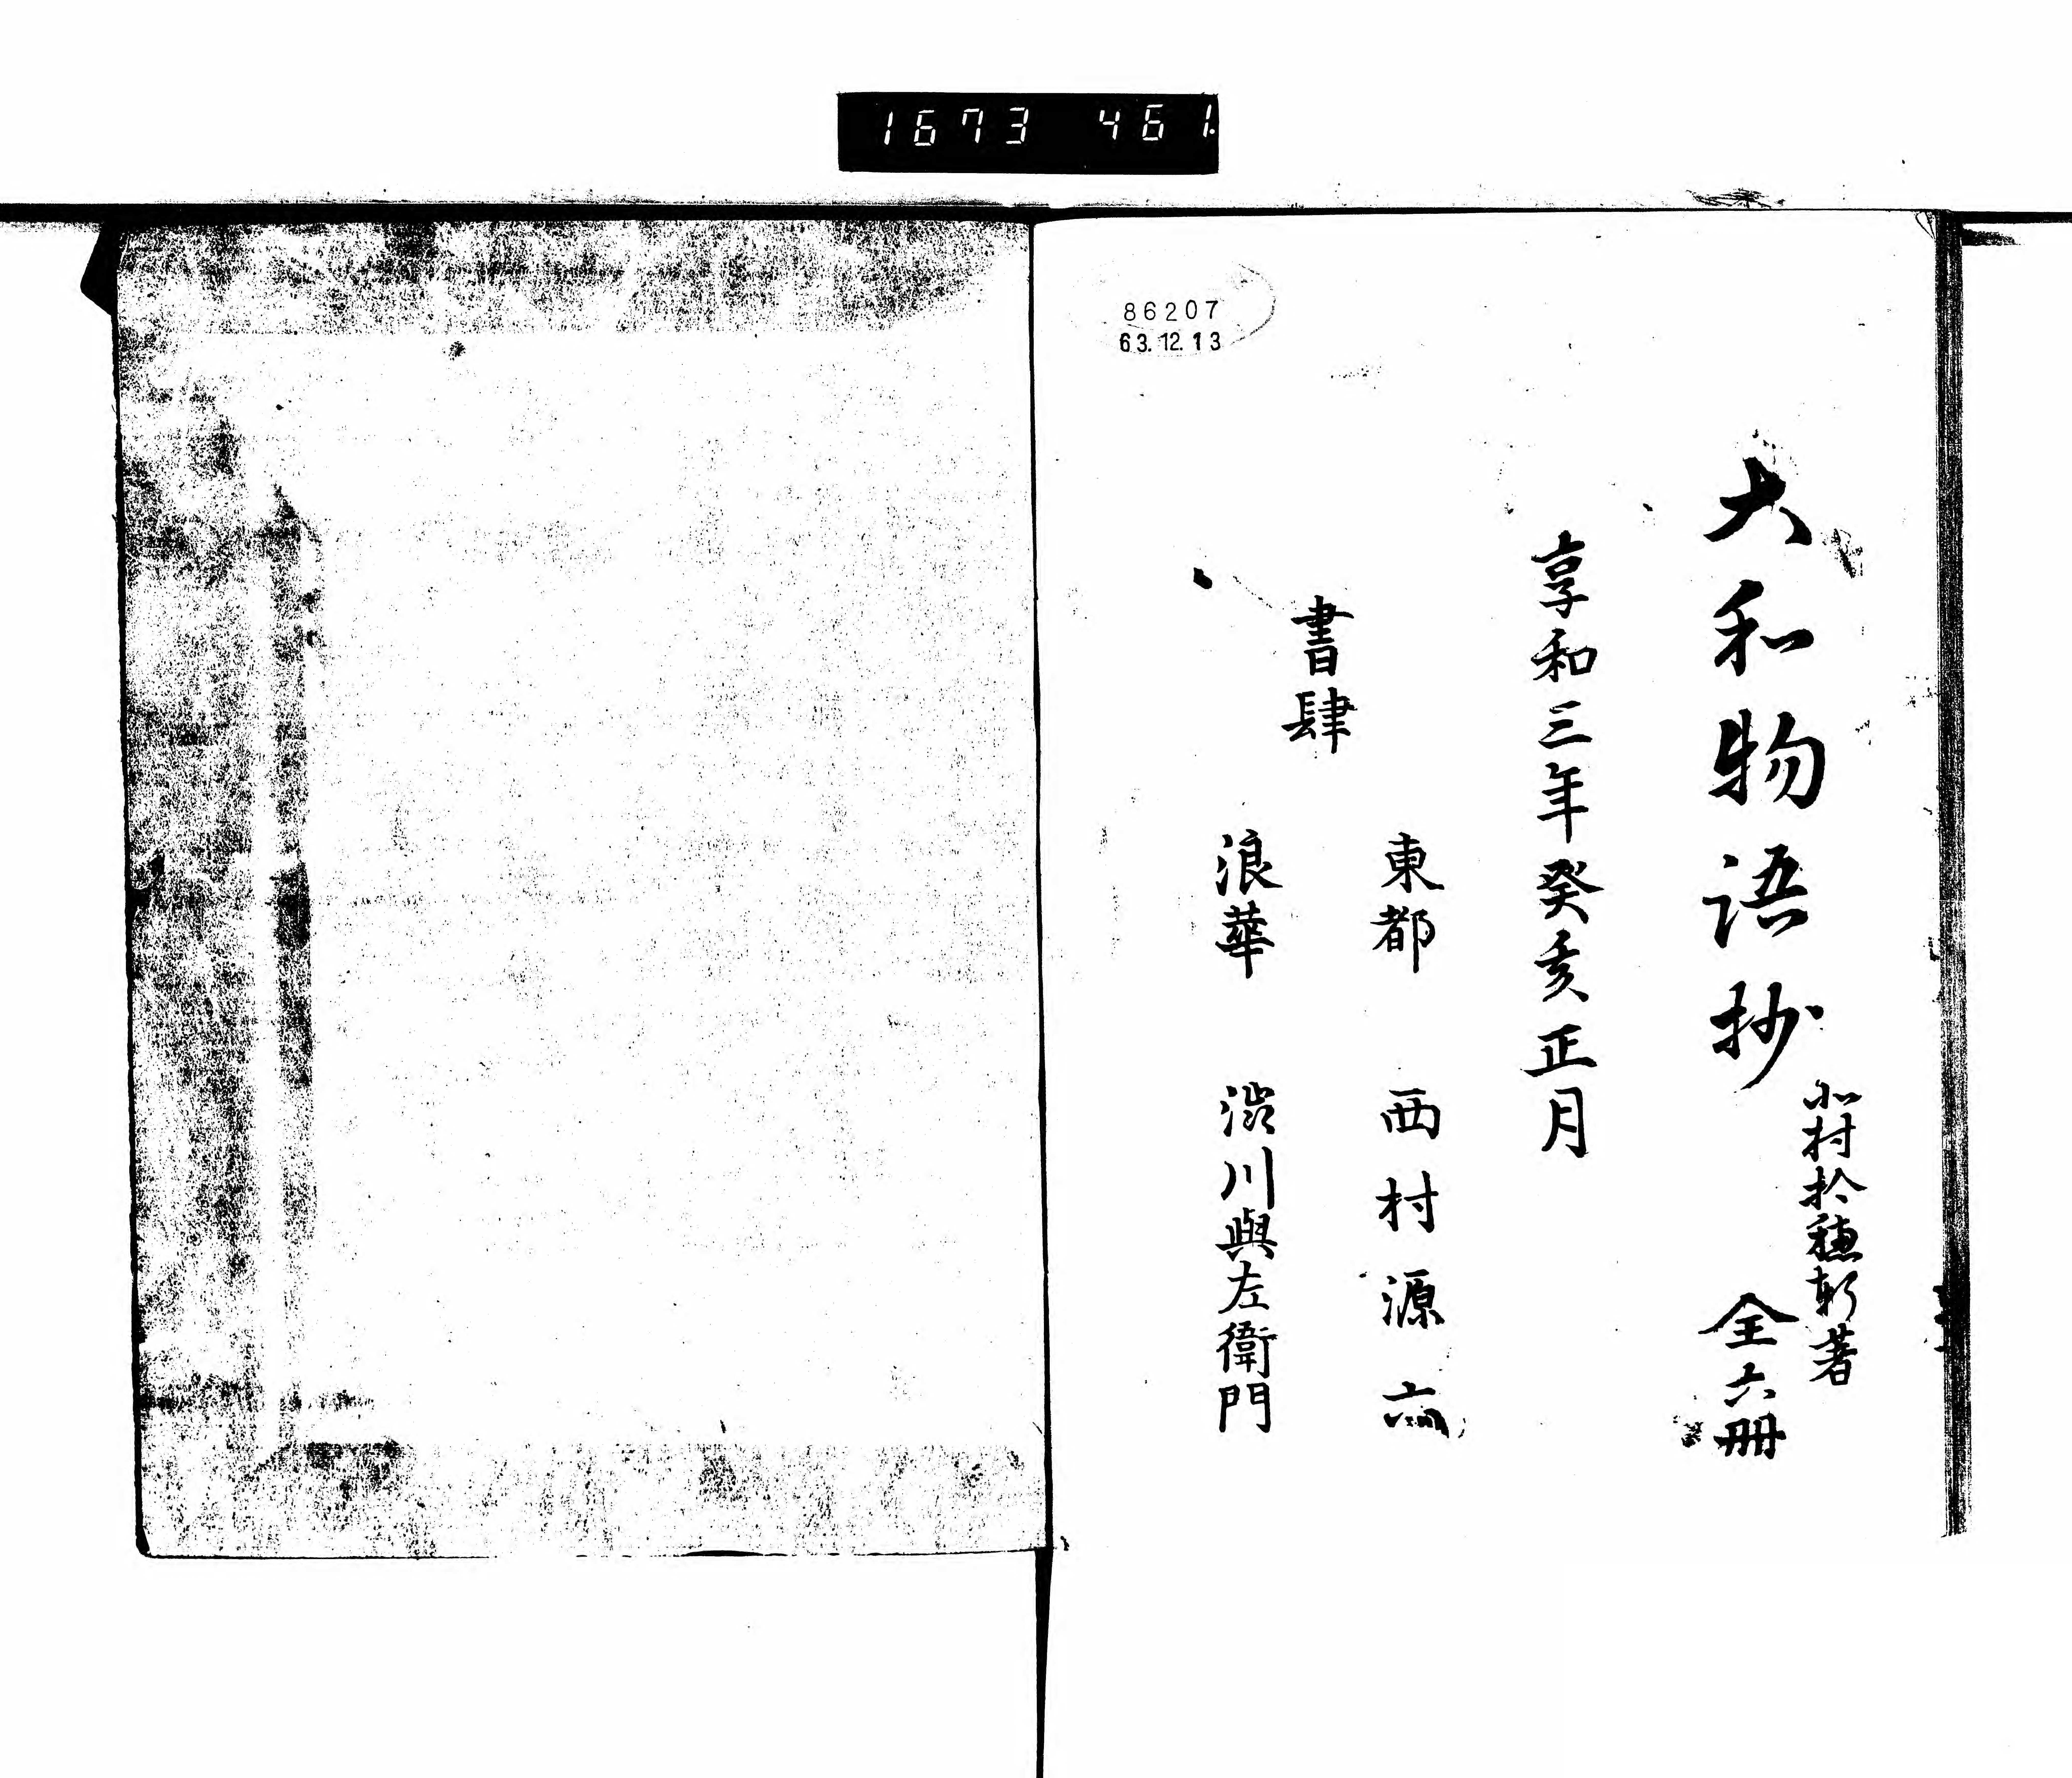 1673 461.
86207
63.12.13
北村拾穗軒著
大和物語抄 全六冊
享和三年癸亥正月
東都 西村源六
書肆
浪華 澁川與左衛門